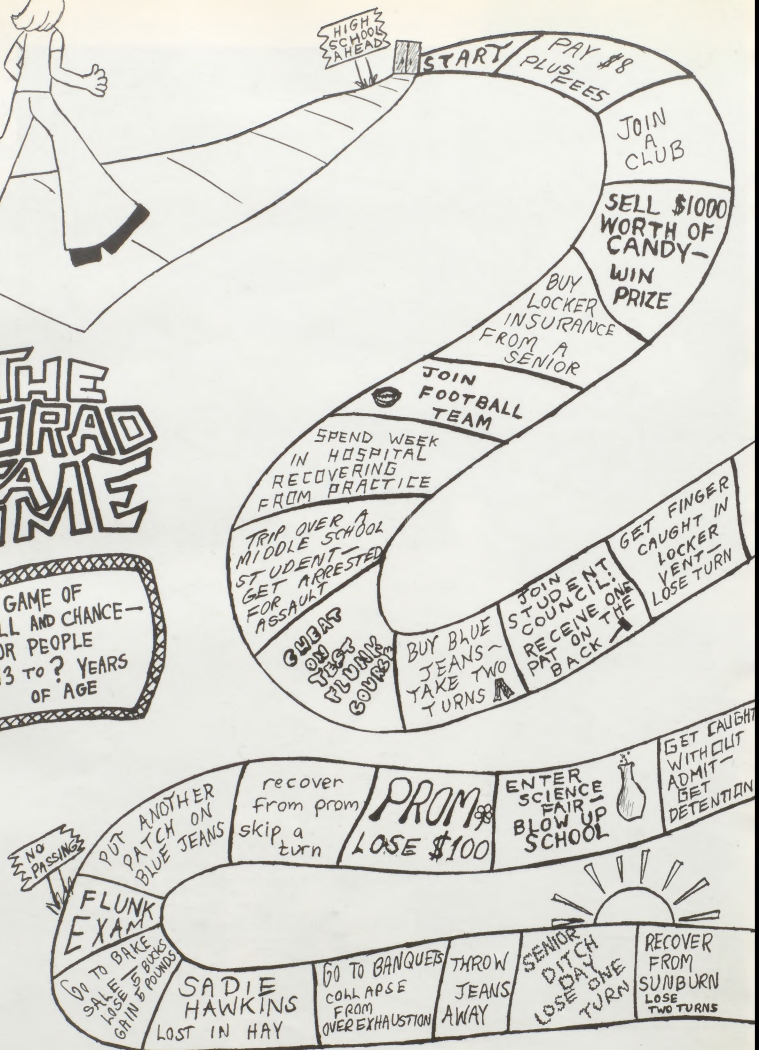 HIGH
SCHOOL
AHEAD
START
PAY $8
PLUS
FEES
JOIN
A
CLUB
SELL $1000
WORTH OF
CANDY—
WIN
PRIZE
BUY
LOCKER
INSURANCE
FROM A
SENIOR
JOIN
FOOTBALL
TEAM
SPEND WEEK
IN HOSPITAL
RECOVERING
FROM PRACTICE
TRIP OVER A
MIDDLE SCHOOL
STUDENT—
GET ARRESTED
FOR
ASSAULT
CHEAT
ON
TEST
FLUNK
COURSE
BUY BLUE
JEANS—
TAKE TWO
TURNS
JOIN
STUDENT
COUNCIL!
RECEIVE ONE
PAT ON THE
BACK
GET FINGER
CAUGHT IN
LOCKER
VENT—
LOSE TURN
THE
GAME OF
AND CHANCE—
PEOPLE
13 TO ? YEARS
OF AGE
GET CAUGHT
WITHOUT
ADMIT—
GET
DETENTION
ENTER
SCIENCE
FAIR—
BLOW UP
SCHOOL
PROM
LOSE $100
recover
from prom
skip a
turn
PUT ANOTHER
PATCH ON
BLUE JEANS
NO
PASSING
FLUNK
EXAM
GO TO BAKE
SALE—
LOSE 5 BUCKS
GAIN 5 POUNDS
SADIE
HAWKINS
LOST IN HAY
GO TO BANQUETS
COLLAPSE
FROM
OVEREXHAUSTION
THROW
JEANS
AWAY
SENIOR
DITCH
DAY
LOSE ONE
TURN
RECOVER
FROM
SUNBURN
LOSE
TWO TURNS